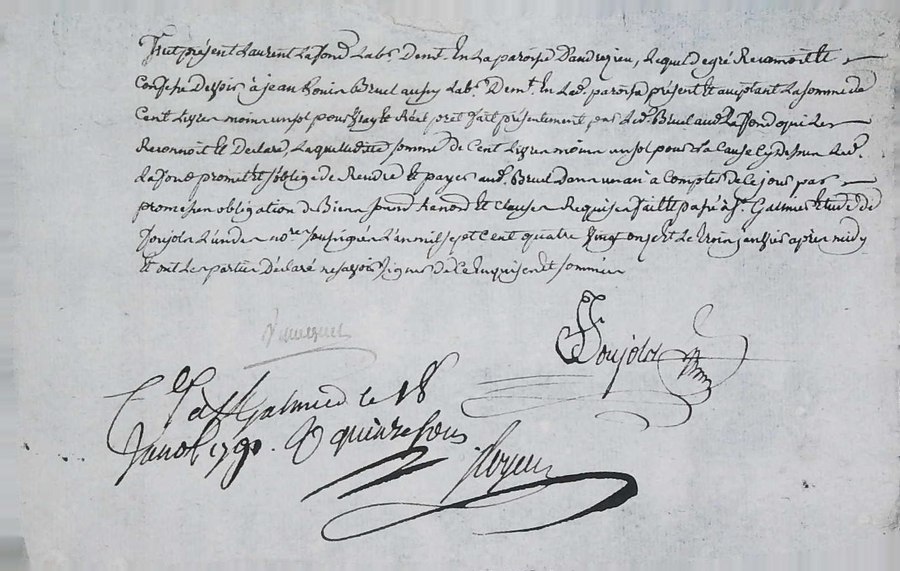 Fut présent Laurent Lafond Lab.r Demt. En La paroisse D'andrezieu, Lequel de gré Reconnoit Et
Confesse Devoir à jean Bonin Bruel aussy Lab.r Demt. En Lad. paroisse présent Et acceptant La somme de
Cent Livres moins un sol pour Vray Et Réel pret fait présentement par Led. Bruel aud. Lafond qui Le
Reconnoit Et Declare, Laquelle ditte somme de Cent Livres moins un sol pour La Cause Cy dessus Led.
Lafond promet Et s'oblige de Rendre Et payer aud. Bruel Dans un an à Compter de Ce jour par
promesse obligation de Biens Et Clauses Requises fait Et passé à St. Galmier Etude de
Soujols L'un des no.res soussignés L'an mil sept Cent quatre Vingt onze Et Le trois janvier après midy
Et ont Les parties Déclaré ne savoir signer de Ce Enquises Et sommées
Soujols
C.lé à St Galmier le 18
Janv. 1791. R quinze sous